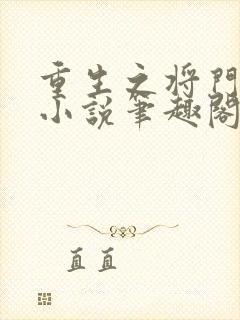 重生之将门
小说笔趣阁
直直